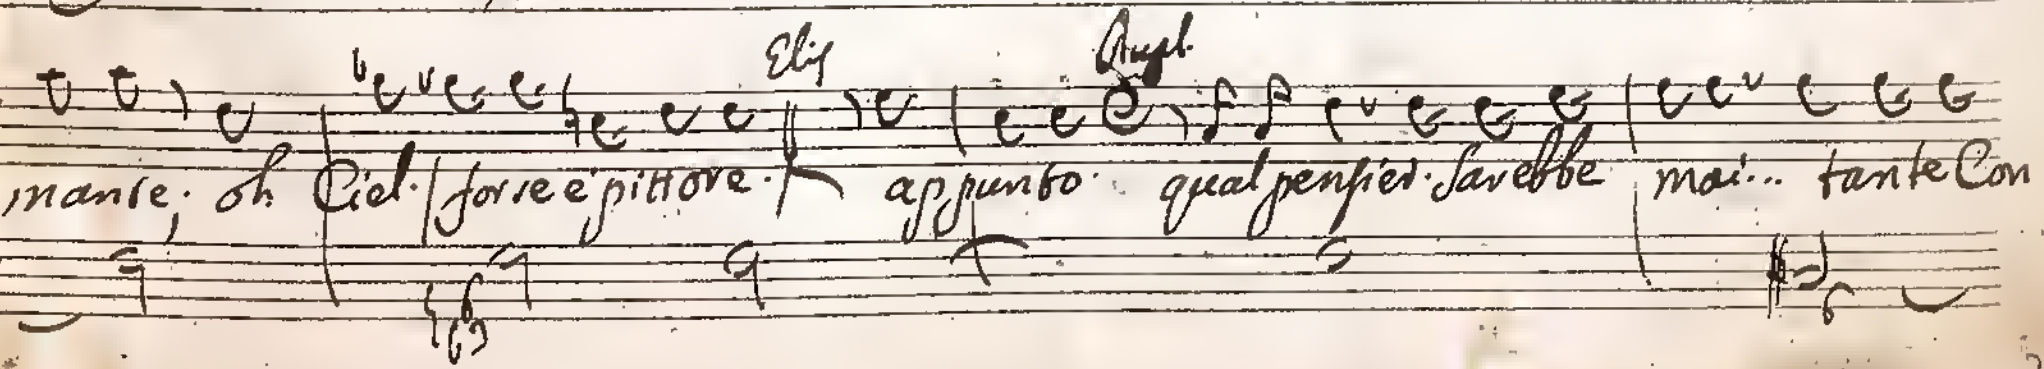 Elis Angl.
manse; oh Ciel. / forse e' pittore. appunto. qual pensier. Sarebbe mai... tante Con
6
6